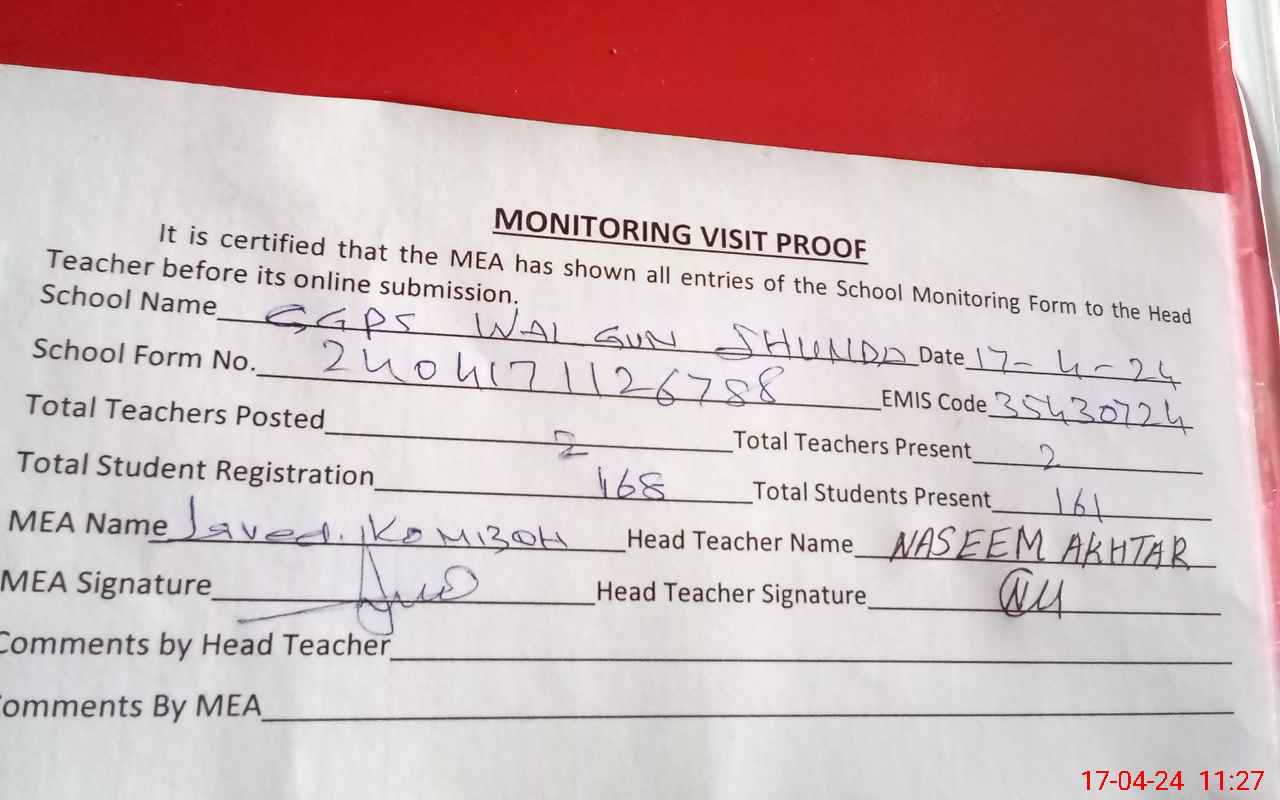 MONITORING VISIT PROOF
It is certified that the MEA has shown all entries of the School Monitoring Form to the Head
Teacher before its online submission.
School Name GGPS WAL GUN SHUNDD Date 17-4-24
School Form No. 2404171126788 EMIS Code 35430724
Total Teachers Posted 2 Total Teachers Present 2
Total Student Registration 168 Total Students Present 161
MEA Name Javed. Head Teacher Name NASEEM AKHTAR
MEA Signature Head Teacher Signature
Comments by Head Teacher
omments By MEA
17-04-24 11:27